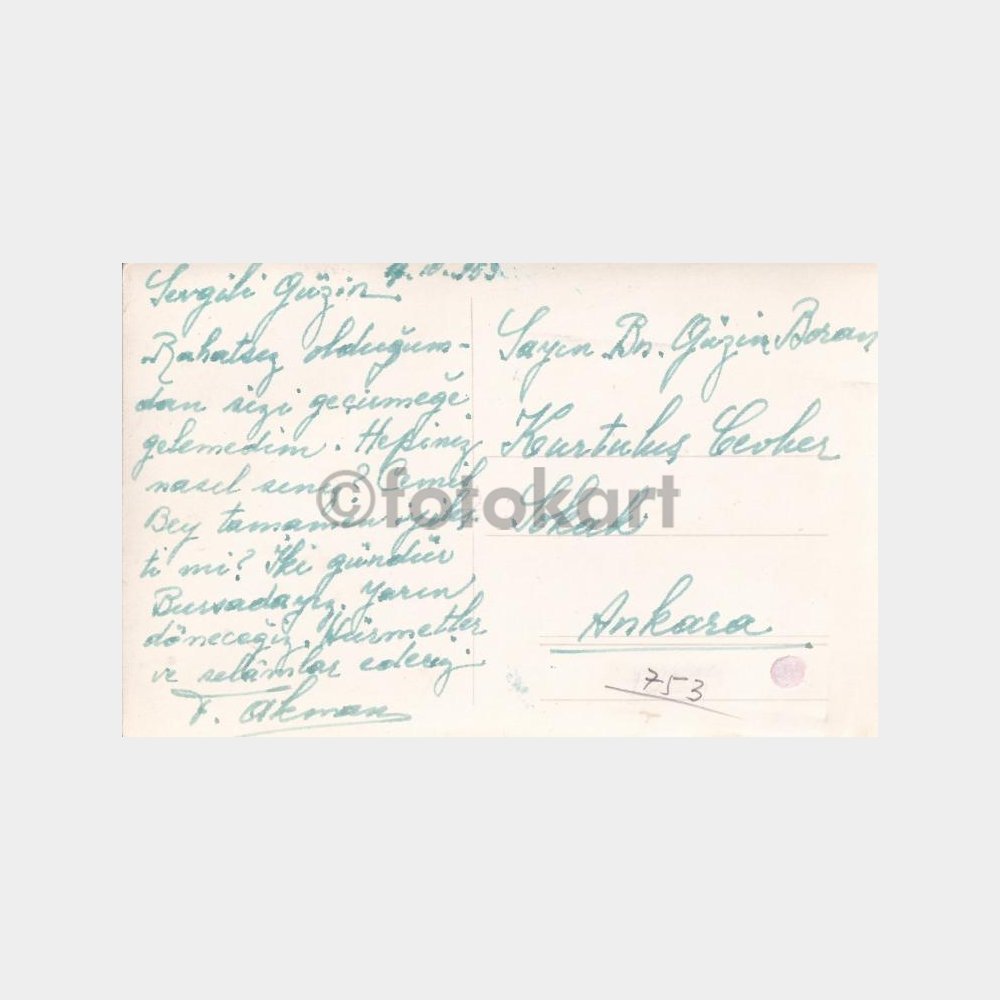 4.10.953
Sevgili Güzin,
Rahatsız olduğum-
dan sizi geçirmeğe
gelemediğim. Hepiniz
nasılsınız? Cemil
Bey tamamen iyileş
ti mi? İki gündür
Bursadayız. Yarın
döneceğiz. Hürmetler
ve selâmlar ederiz.
F. Akman
Sayın Bn. Güzin Boran
Kurtuluş Cevher
Sokak
Ankara
753
©fotokart